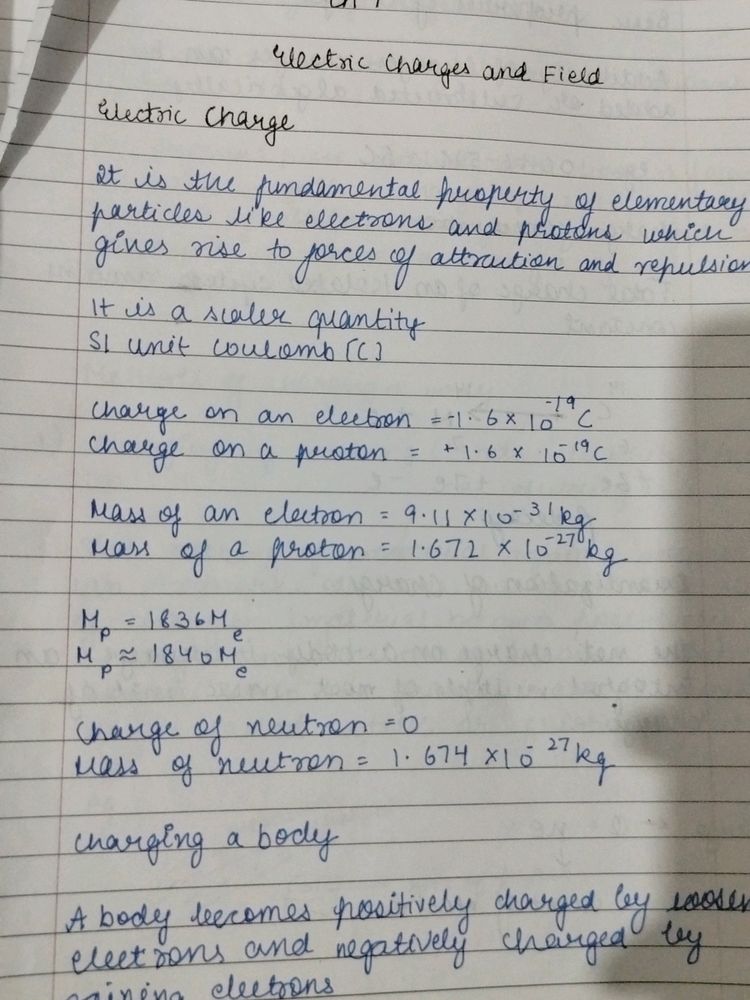 Ch 1
Electric Charges and Field
Electric Charge
It is the fundamental property of elementary
particles like electrons and protons which
gives rise to forces of attraction and repulsion
It is a scaler quantity
SI unit coulomb (C)
Charge on an electron = -1.6 × 10⁻¹⁹ C
Charge on a proton = +1.6 × 10⁻¹⁹ C
Mass of an electron = 9.11 × 10⁻³¹ kg
Mass of a proton = 1.672 × 10⁻²⁷ kg
Mₚ = 1836Mₑ
Mₚ ≈ 1840Mₑ
Charge of neutron = 0
Mass of neutron = 1.674 × 10⁻²⁷ kg
Charging a body
A body becomes positively charged by
electrons and negatively charged by
gaining electrons